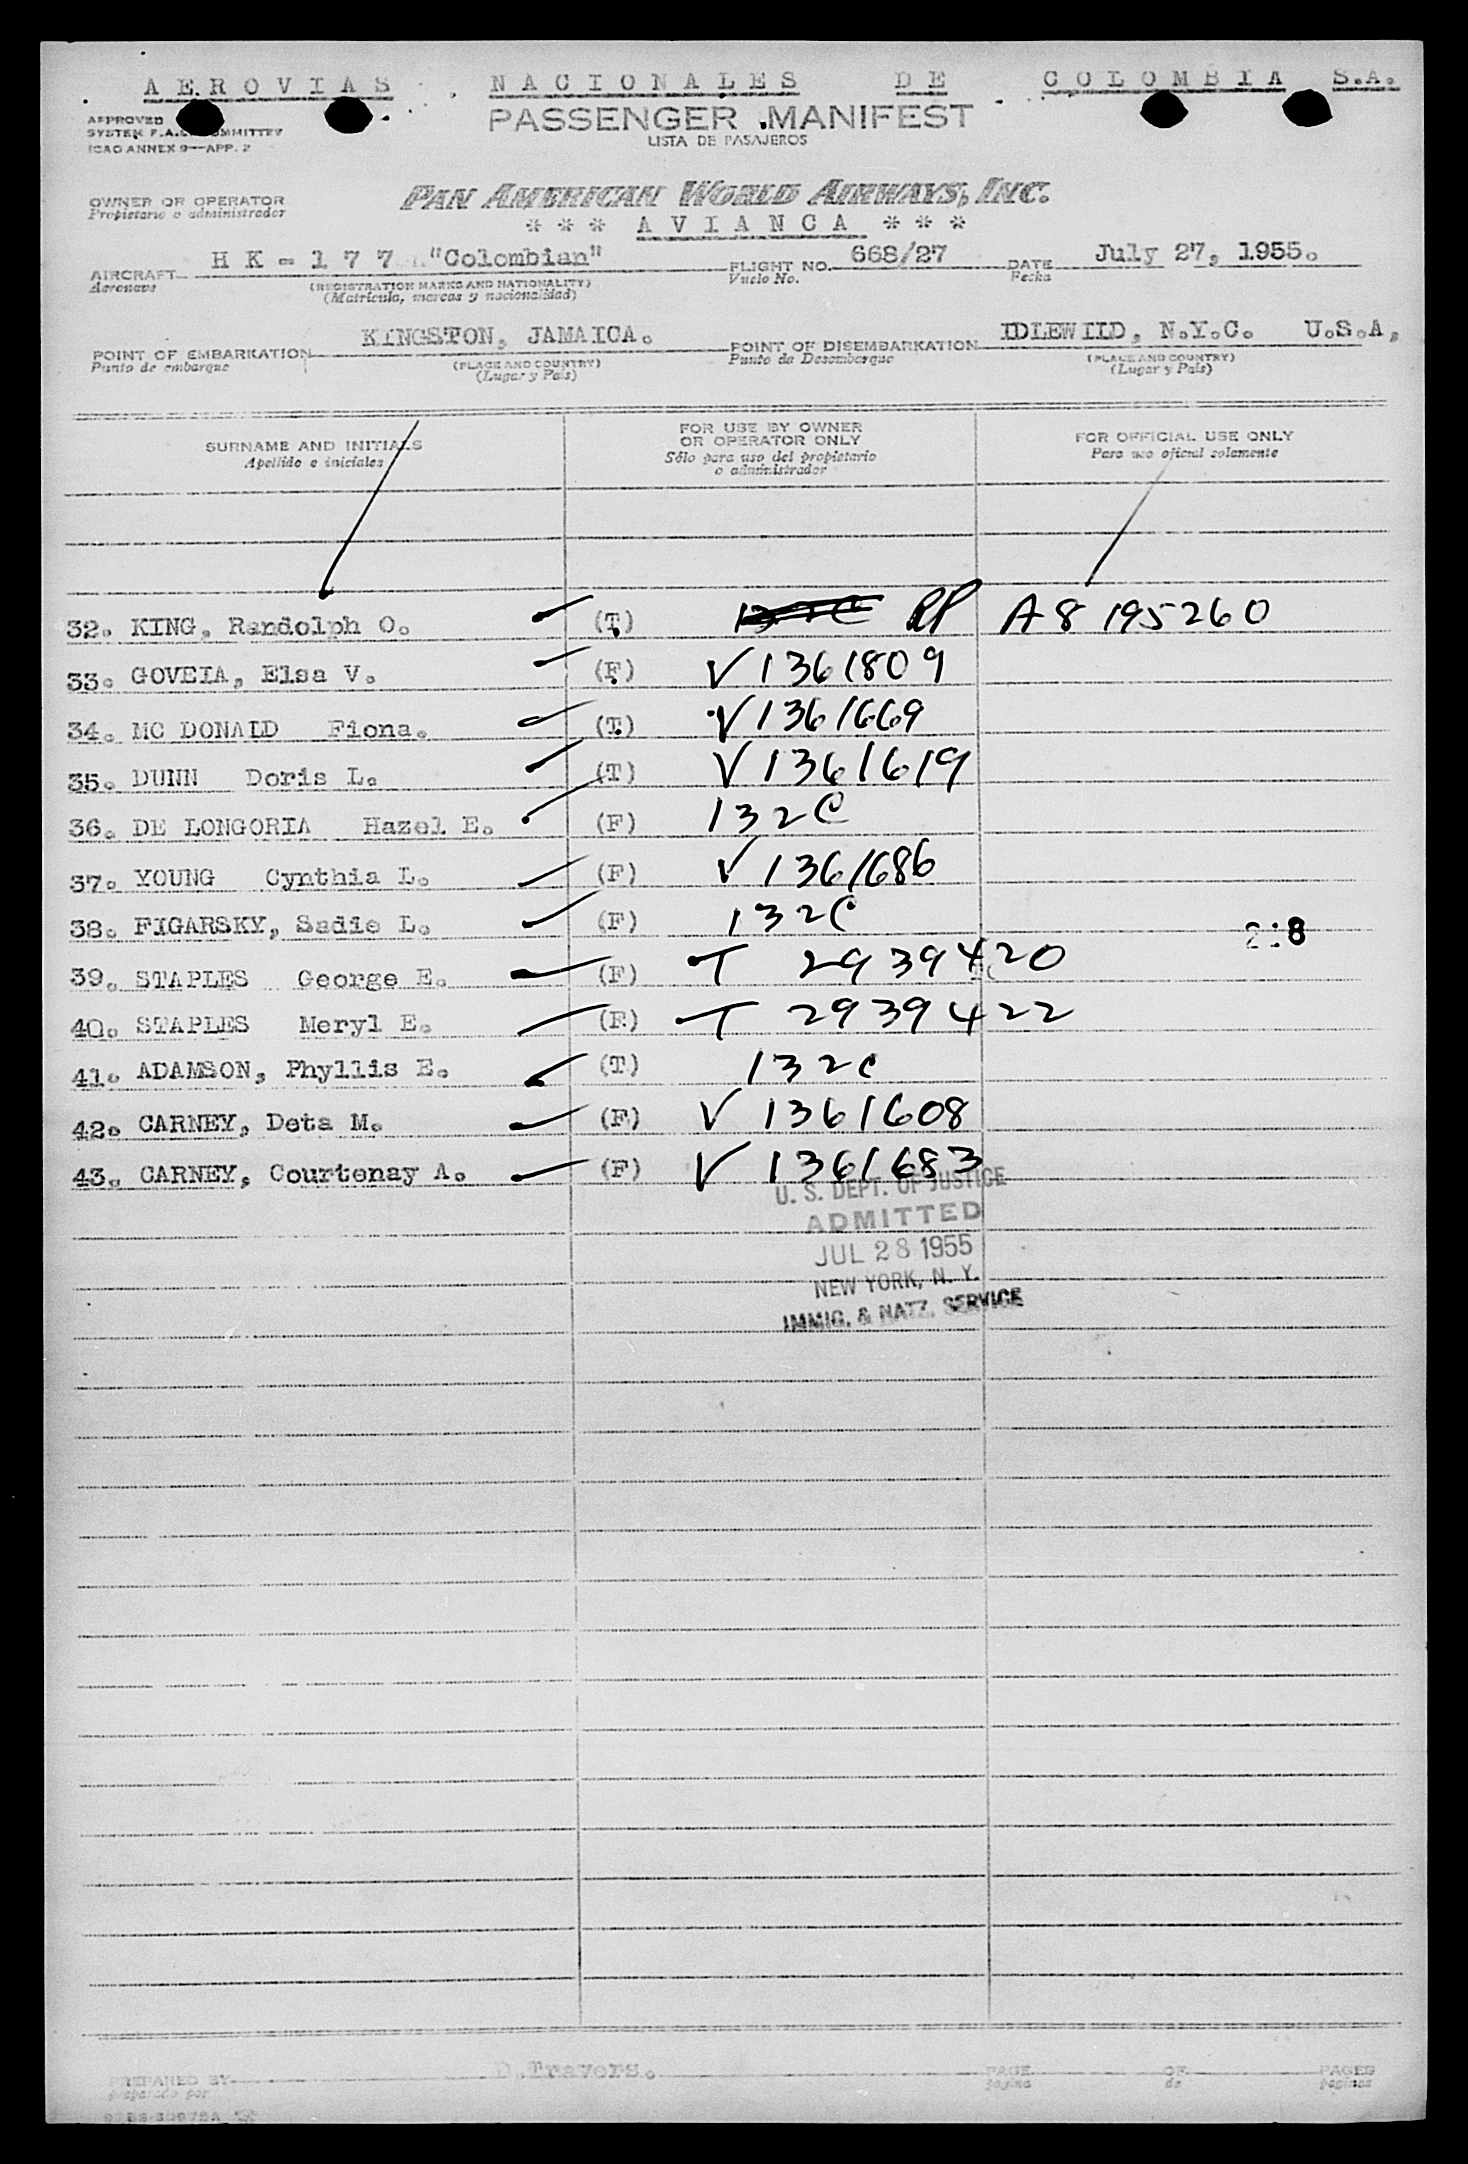 AEROVIAS NACIONALES DE COLOMBIA S.A.
APPROVED
SYSTEM F.A.L. COMMITTEE
ICAO ANNEX 9—APP. 2
PASSENGER MANIFEST
LISTA DE PASAJEROS
OWNER OR OPERATOR
Propietario o administrador
PAN AMERICAN WORLD AIRWAYS, INC.
* * * AVIANCA * * *
AIRCRAFT HK-177 "Colombian" FLIGHT NO. 668/27 DATE July 27, 1955.
Aeronave (REGISTRATION MARKS AND NATIONALITY) Vuelo No. Fecha
(Matrícula, marcas y nacionalidad)
POINT OF EMBARKATION KINGSTON, JAMAICA. POINT OF DISEMBARKATION IDLEWILD, N.Y.C. U.S.A,
Punto de embarque (PLACE AND COUNTRY) Punto de Desembarque (PLACE AND COUNTRY)
(Lugar y País) (Lugar y País)
SURNAME AND INITIALS FOR USE BY OWNER OR OPERATOR ONLY FOR OFFICIAL USE ONLY
Apellido e iniciales Sólo para uso del propietario o administrador Para uso oficial solamente
32. KING, Randolph O. (T) PP A8 195260
33. GOVEIA, Elsa V. (F) V 1361809
34. MC DONALD Fiona. (T) V 1361669
35. DUNN Doris L. (T) V 1361619
36. DE LONGORIA Hazel E. (F) 132C
37. YOUNG Cynthia L. (F) V 1361686
38. FIGARSKY, Sadie L. (F) 132C
218
39. STAPLES George E. (F) T 2939420
40. STAPLES Meryl E. (F) T 2939422
41. ADAMSON, Phyllis E. (T) 132C
42. CARNEY, Deta M. (F) V 1361608
43. CARNEY, Courtenay A. (F) V 1361683
U. S. DEPT. OF JUSTICE
ADMITTED
JUL 28 1955
NEW YORK, N. Y.
IMMIG. & NATZ. SERVICE
PREPARED BY D.Travers. PAGE OF PAGES
preparado por página de páginas